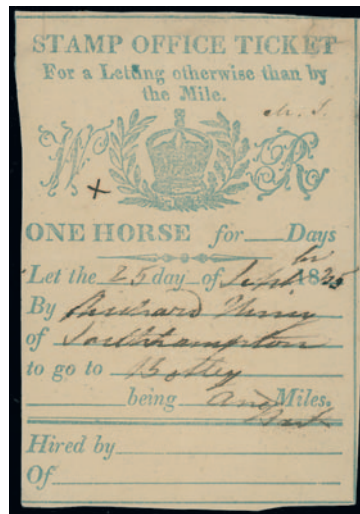 STAMP OFFICE TICKET
For a Letting otherwise than by
the Mile.
W R
ONE HORSE for Days
Let the 25 day of Septbr 1835
By Richard
of Southampton
to go to Botley
being and Miles.
Hired by
Of